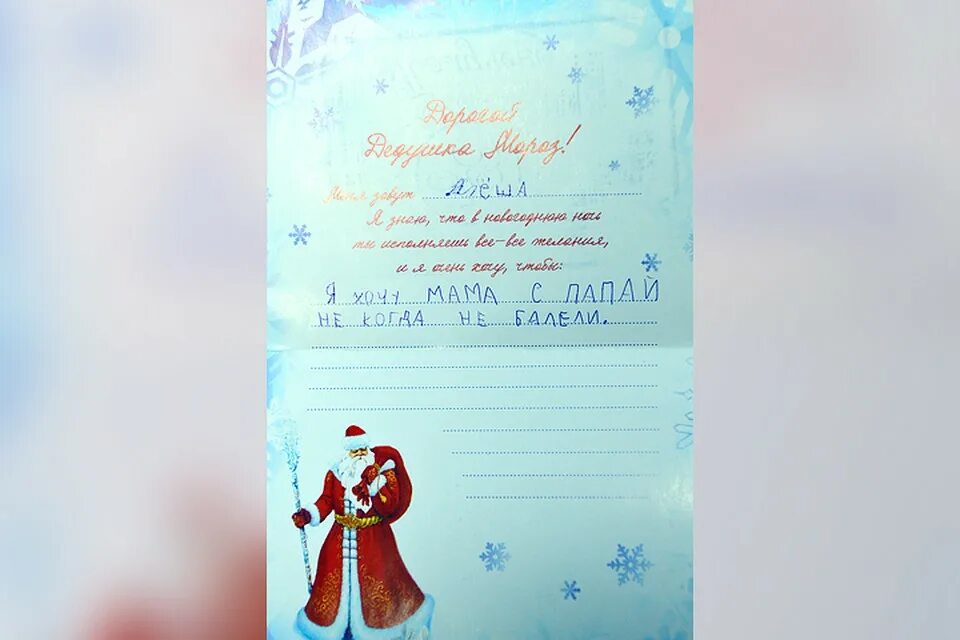 Дорогой
Дедушка Мороз!
Меня зовут Алёша
Я знаю, что в новогоднюю ночь
ты исполняешь все-все желания,
и я очень хочу, чтобы:
Я ХОЧУ МАМА С ПАПАЙ
НЕ КОГДА НЕ БАЛЕЛИ.